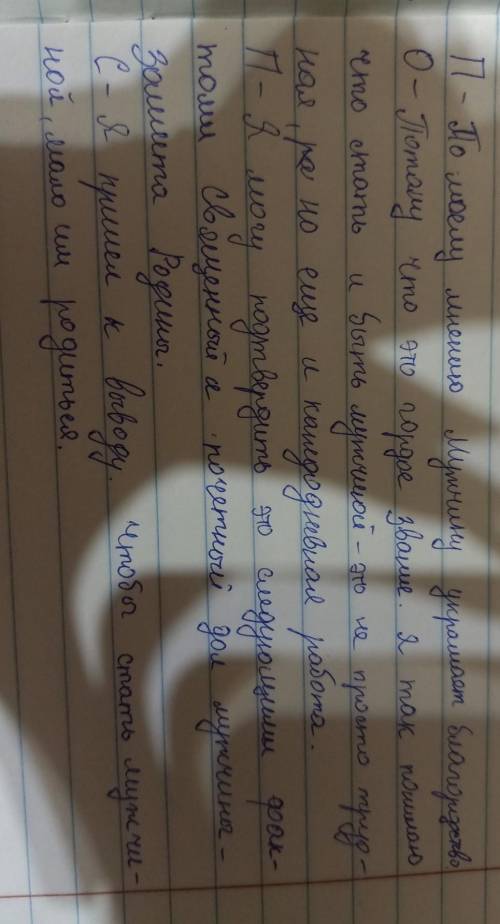 П - По моему мнению Мужчину украшает благородство
О - Потому что это гордое звание. Я так понимаю
что стать и быть мужчиной - это не просто труд-
ная, но еще и каждодневная работа.
П - Я могу подтвердить это следующими фак-
тами Священный и почетный долг мужчины -
защита Родины.
С - Я пришел к выводу. Чтобы стать мужчи-
ной, мало им родиться.